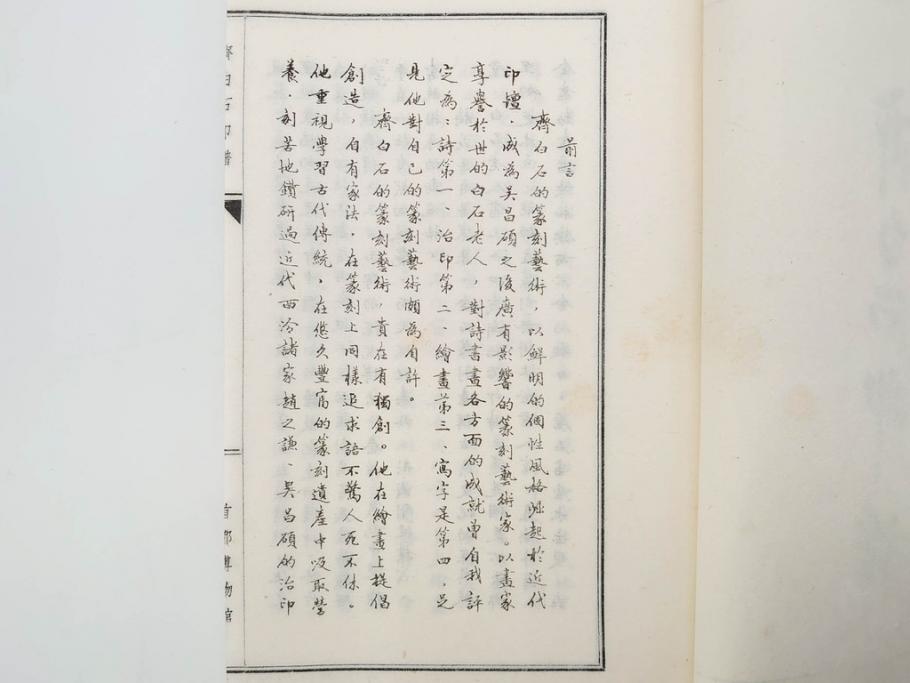 前言
齊白石的篆刻藝術，以鮮明的個性風格崛起於近代
印壇．成為吴昌碩之後廣有影響的篆刻藝術家。以畫家
享譽於世的白石老人，對詩書畫各方面的成就曾自我評
定為：詩第一、治印第二、繪畫第三、寫字是第四，足
見他對自己的篆刻藝術頗為自許。
齊白石的篆刻藝術，貴在有獨創。他在繪畫上提倡
創造，自有家法，在篆刻上同樣追求語不驚人死不休。
他重視學習古代傳統。在悠久豐富的篆刻遺產中吸取營
養．刻苦地鑽研過近代西泠諸家趙之謙、吴昌碩的治印
齊白石印譜
首都博物館